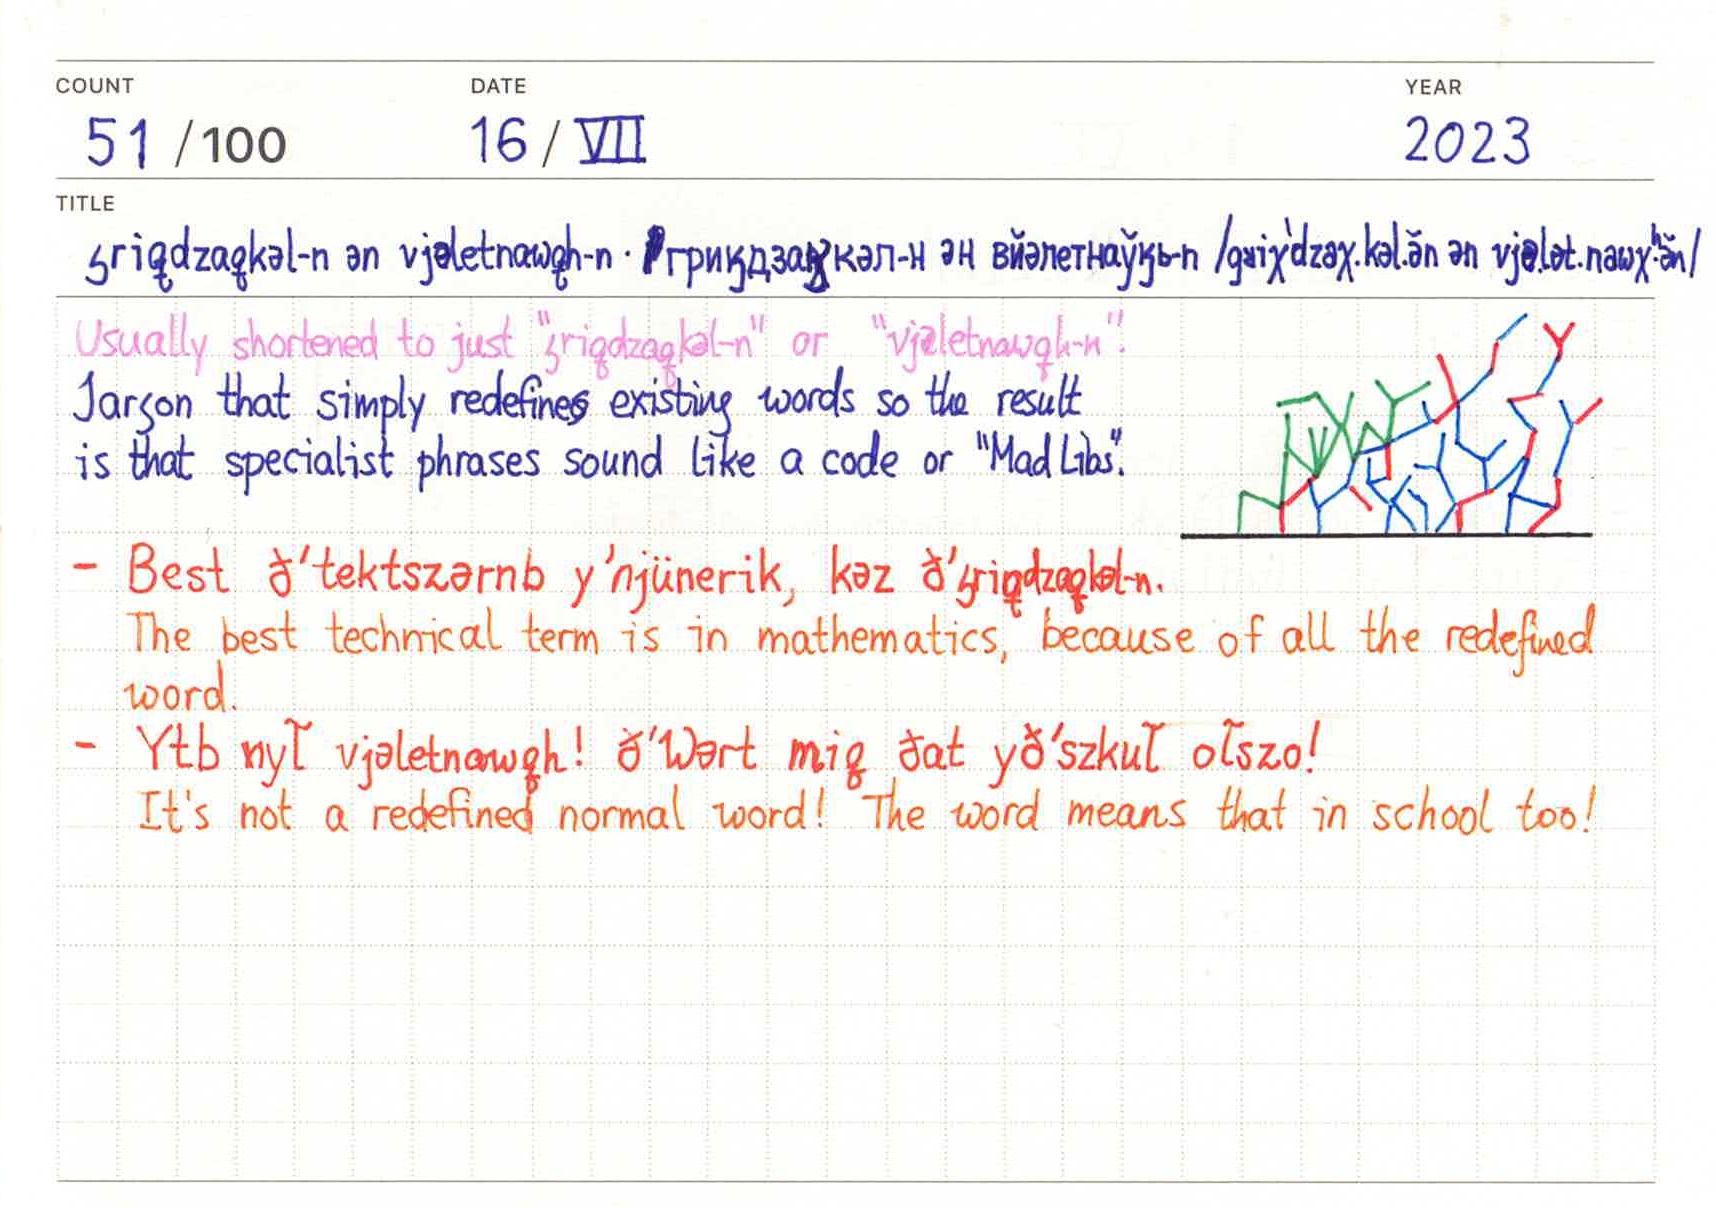 COUNT DATE YEAR
51 /100 16 / VII 2023
TITLE
ʒriqdzaqkəl-n ən vjəletnawqh-n · гриӄдзаӄкəл-н əн вйəлетнаўӄь-n /gʁiχˈdzaχ.kəl.ə̆n ən vjəlɘt.nawχʰ.ə̆n/
Usually shortened to just "ʒriqdzaqkəl-n" or "vjəletnawqh-n".
Jargon that simply redefines existing words so the result
is that specialist phrases sound like a code or "Mad Libs".
- Best ð'tektszərnb y'njünerik, kəz ð'ʒriqdzaqkəl-n.
The best technical term is in mathematics, because of all the redefined
word.
- Ytb nyl̃ vjəletnawqh! ð'Wərt miq ðat yð'szkul̃ ol̃szo!
It's not a redefined normal word! The word means that in school too!